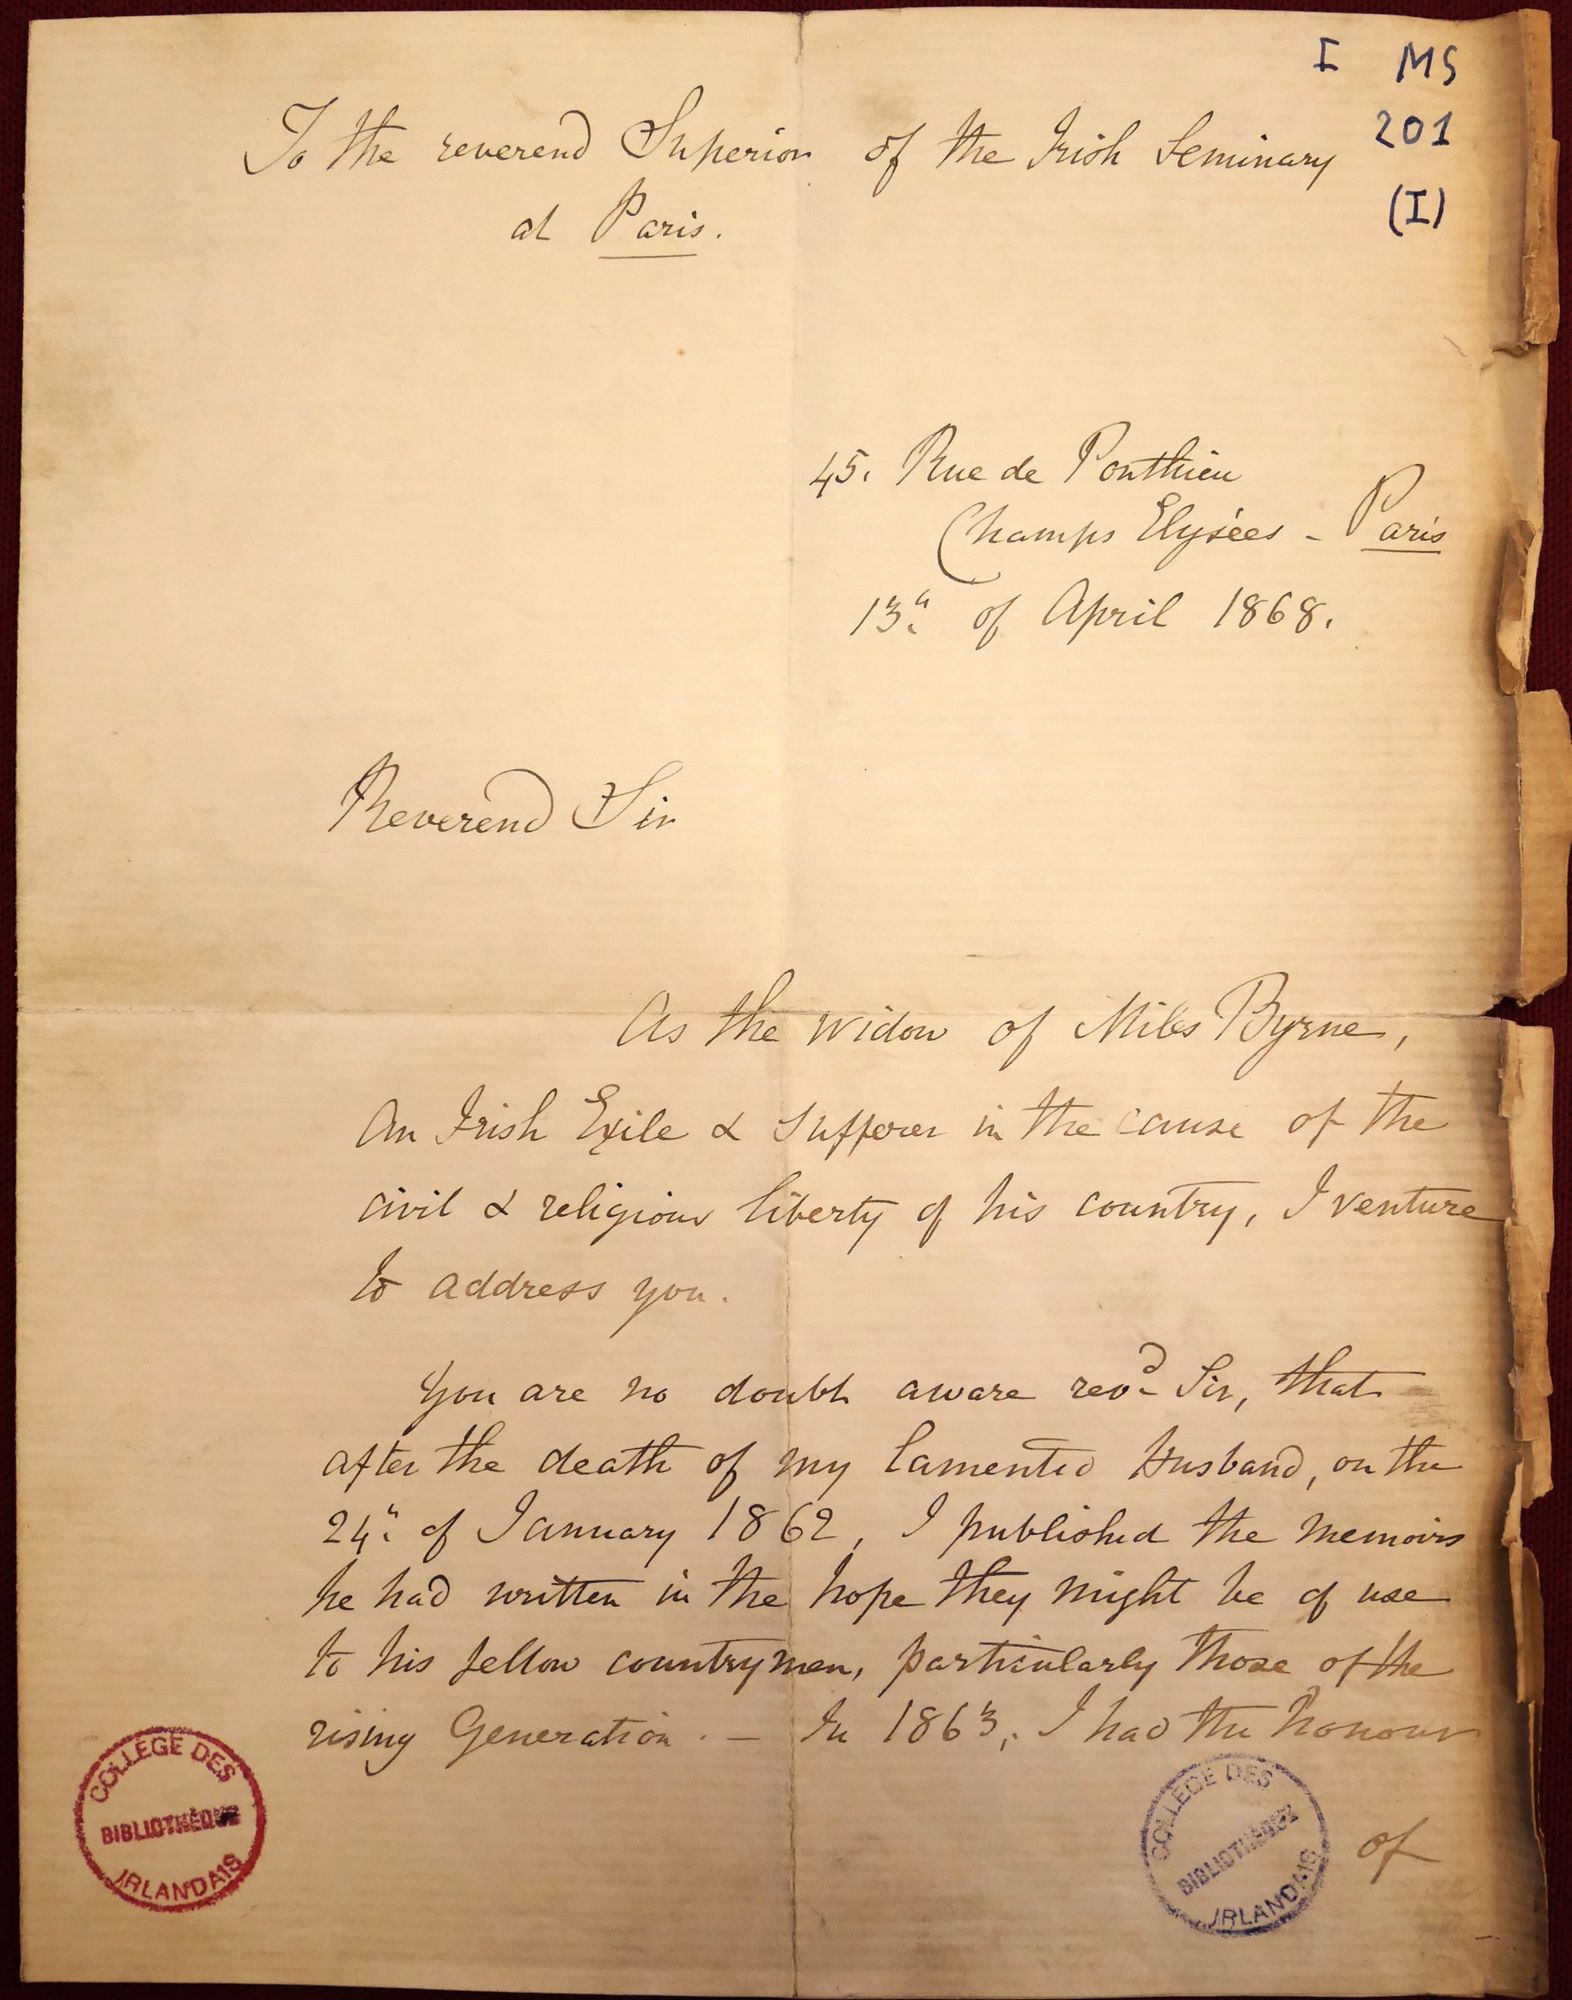 I MS
201
(I)
To the reverend Superior of the Irish Seminary
at Paris.
45. Rue de Ponthieu
Champs Elysées - Paris
13th of April 1868.
Reverend Sir
As the widow of Miles Byrne,
An Irish Exile & Sufferer in the cause of the
civil & religious liberty of his country, I venture
to address you.
You are no doubt aware revd Sir, that
after the death of my lamented Husband, on the
24th of January 1862, I published the Memoirs
he had written in the hope they might be of use
to his fellow countrymen, particularly those of the
rising Generation. - In 1863, I had the honour
of
COLLEGE DES
BIBLIOTHÈQUE
IRLANDAIS
COLLEGE DES
BIBLIOTHÈQUE
IRLANDAIS